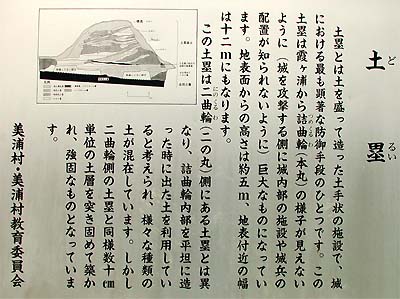 土塁
ど
るい
土塁とは土を盛って造った土手状の施設で、城
における最も顕著な防御手段のひとつです。この
土塁は霞ヶ浦から詰曲輪（本丸）の様子が見えない
ように（城を攻撃する側に城内部の施設や城兵の
配置が知られないように）巨大なものになってい
ます。地表面からの高さは約五ｍ、地表付近の幅
は十二ｍにもなります。
この土塁は二曲輪（二の丸）側にある土塁とは異
なり、詰曲輪内部を平坦に造
った時に出た土を利用してい
ると考えられ、様々な種類の
土が混在しています。しかし
二曲輪側の土塁と同様数十㎝
単位の土層を突き固めて築か
れ、強固なものとなっていま
す。
美浦村・美浦村教育委員会